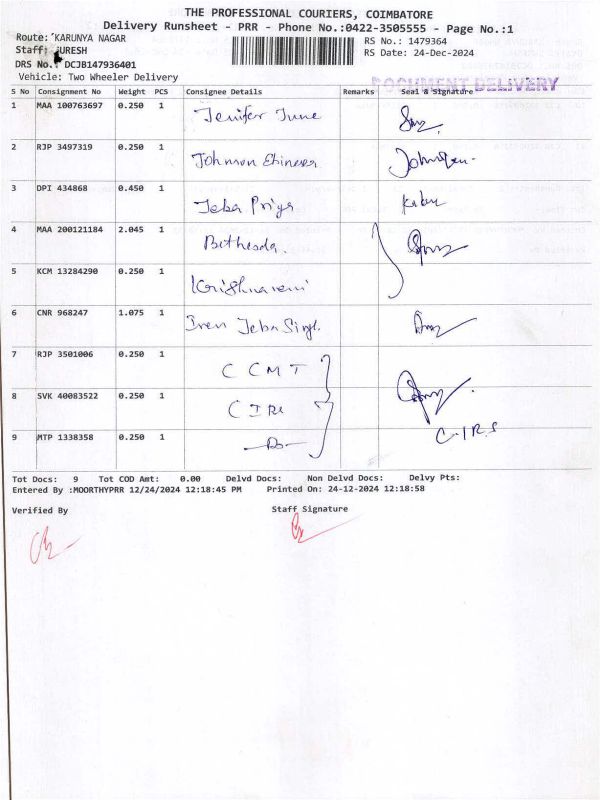 THE PROFESSIONAL COURIERS, COIMBATORE
Delivery Runsheet - PRR - Phone No.:0422-3505555 - Page No.:1
Route: KARUNYA NAGAR
RS No.: 1479364
Staff: SURESH
RS Date: 24-Dec-2024
DRS No.: DCJB147936401
Vehicle: Two Wheeler Delivery
DOCUMENT DELIVERY
S No Consignment No Weight PCS Consignee Details Remarks Seal & Signature
1 MAA 100763697 0.250 1 Jenifer June
2 RJP 3497319 0.250 1 Johnson Ebineser
3 DPI 434868 0.450 1 Jeba Priya
4 MAA 200121184 2.045 1 Bethesda.
5 KCM 13284290 0.250 1 Krishnaveni
6 CNR 968247 1.075 1 Iven Jeba Singh
7 RJP 3501006 0.250 1 C C M T
8 SVK 40083522 0.250 1 C I R S
9 MTP 1338358 0.250 1 -Do- C.I.R.S
Tot Docs: 9 Tot COD Amt: 0.00 Delvd Docs: Non Delvd Docs: Delvy Pts:
Entered By :MOORTHYPRR 12/24/2024 12:18:45 PM Printed On: 24-12-2024 12:18:58
Verified By Staff Signature